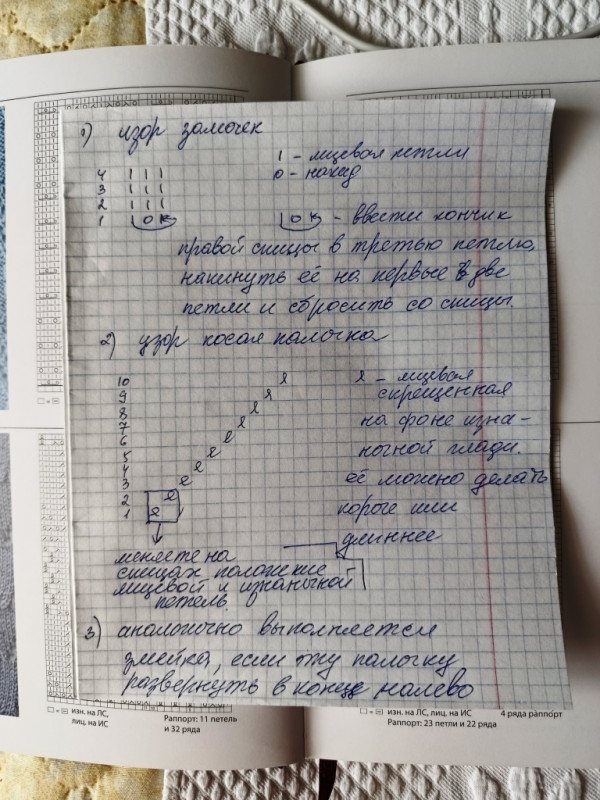 1) узор замочек
1 - лицевая петля
0 - накид
4 | | |
3 | | |
2 | | |
1 | 0 K
| 0 K - ввести кончик
правой спицы в третью петлю,
накинуть её на первые две
петли и сбросить со спицы.
2) узор косая палочка
10
9
8
7
6
5
4
3
2
1
- лицевая
скрещенная
на фоне изна-
ночной глади.
её можно делать
короче или
длиннее
меняете на
спицах положение
лицевой и изнаночной
петель.
3) аналогично выполняется
змейка, если эту палочку
развернуть в конце налево
изн. на ЛС,
лиц. на ИС
Раппорт: 11 петель
и 32 ряда
изн. на ЛС, лиц. на ИС
4 ряда раппорт
Раппорт: 23 петли и 22 ряда